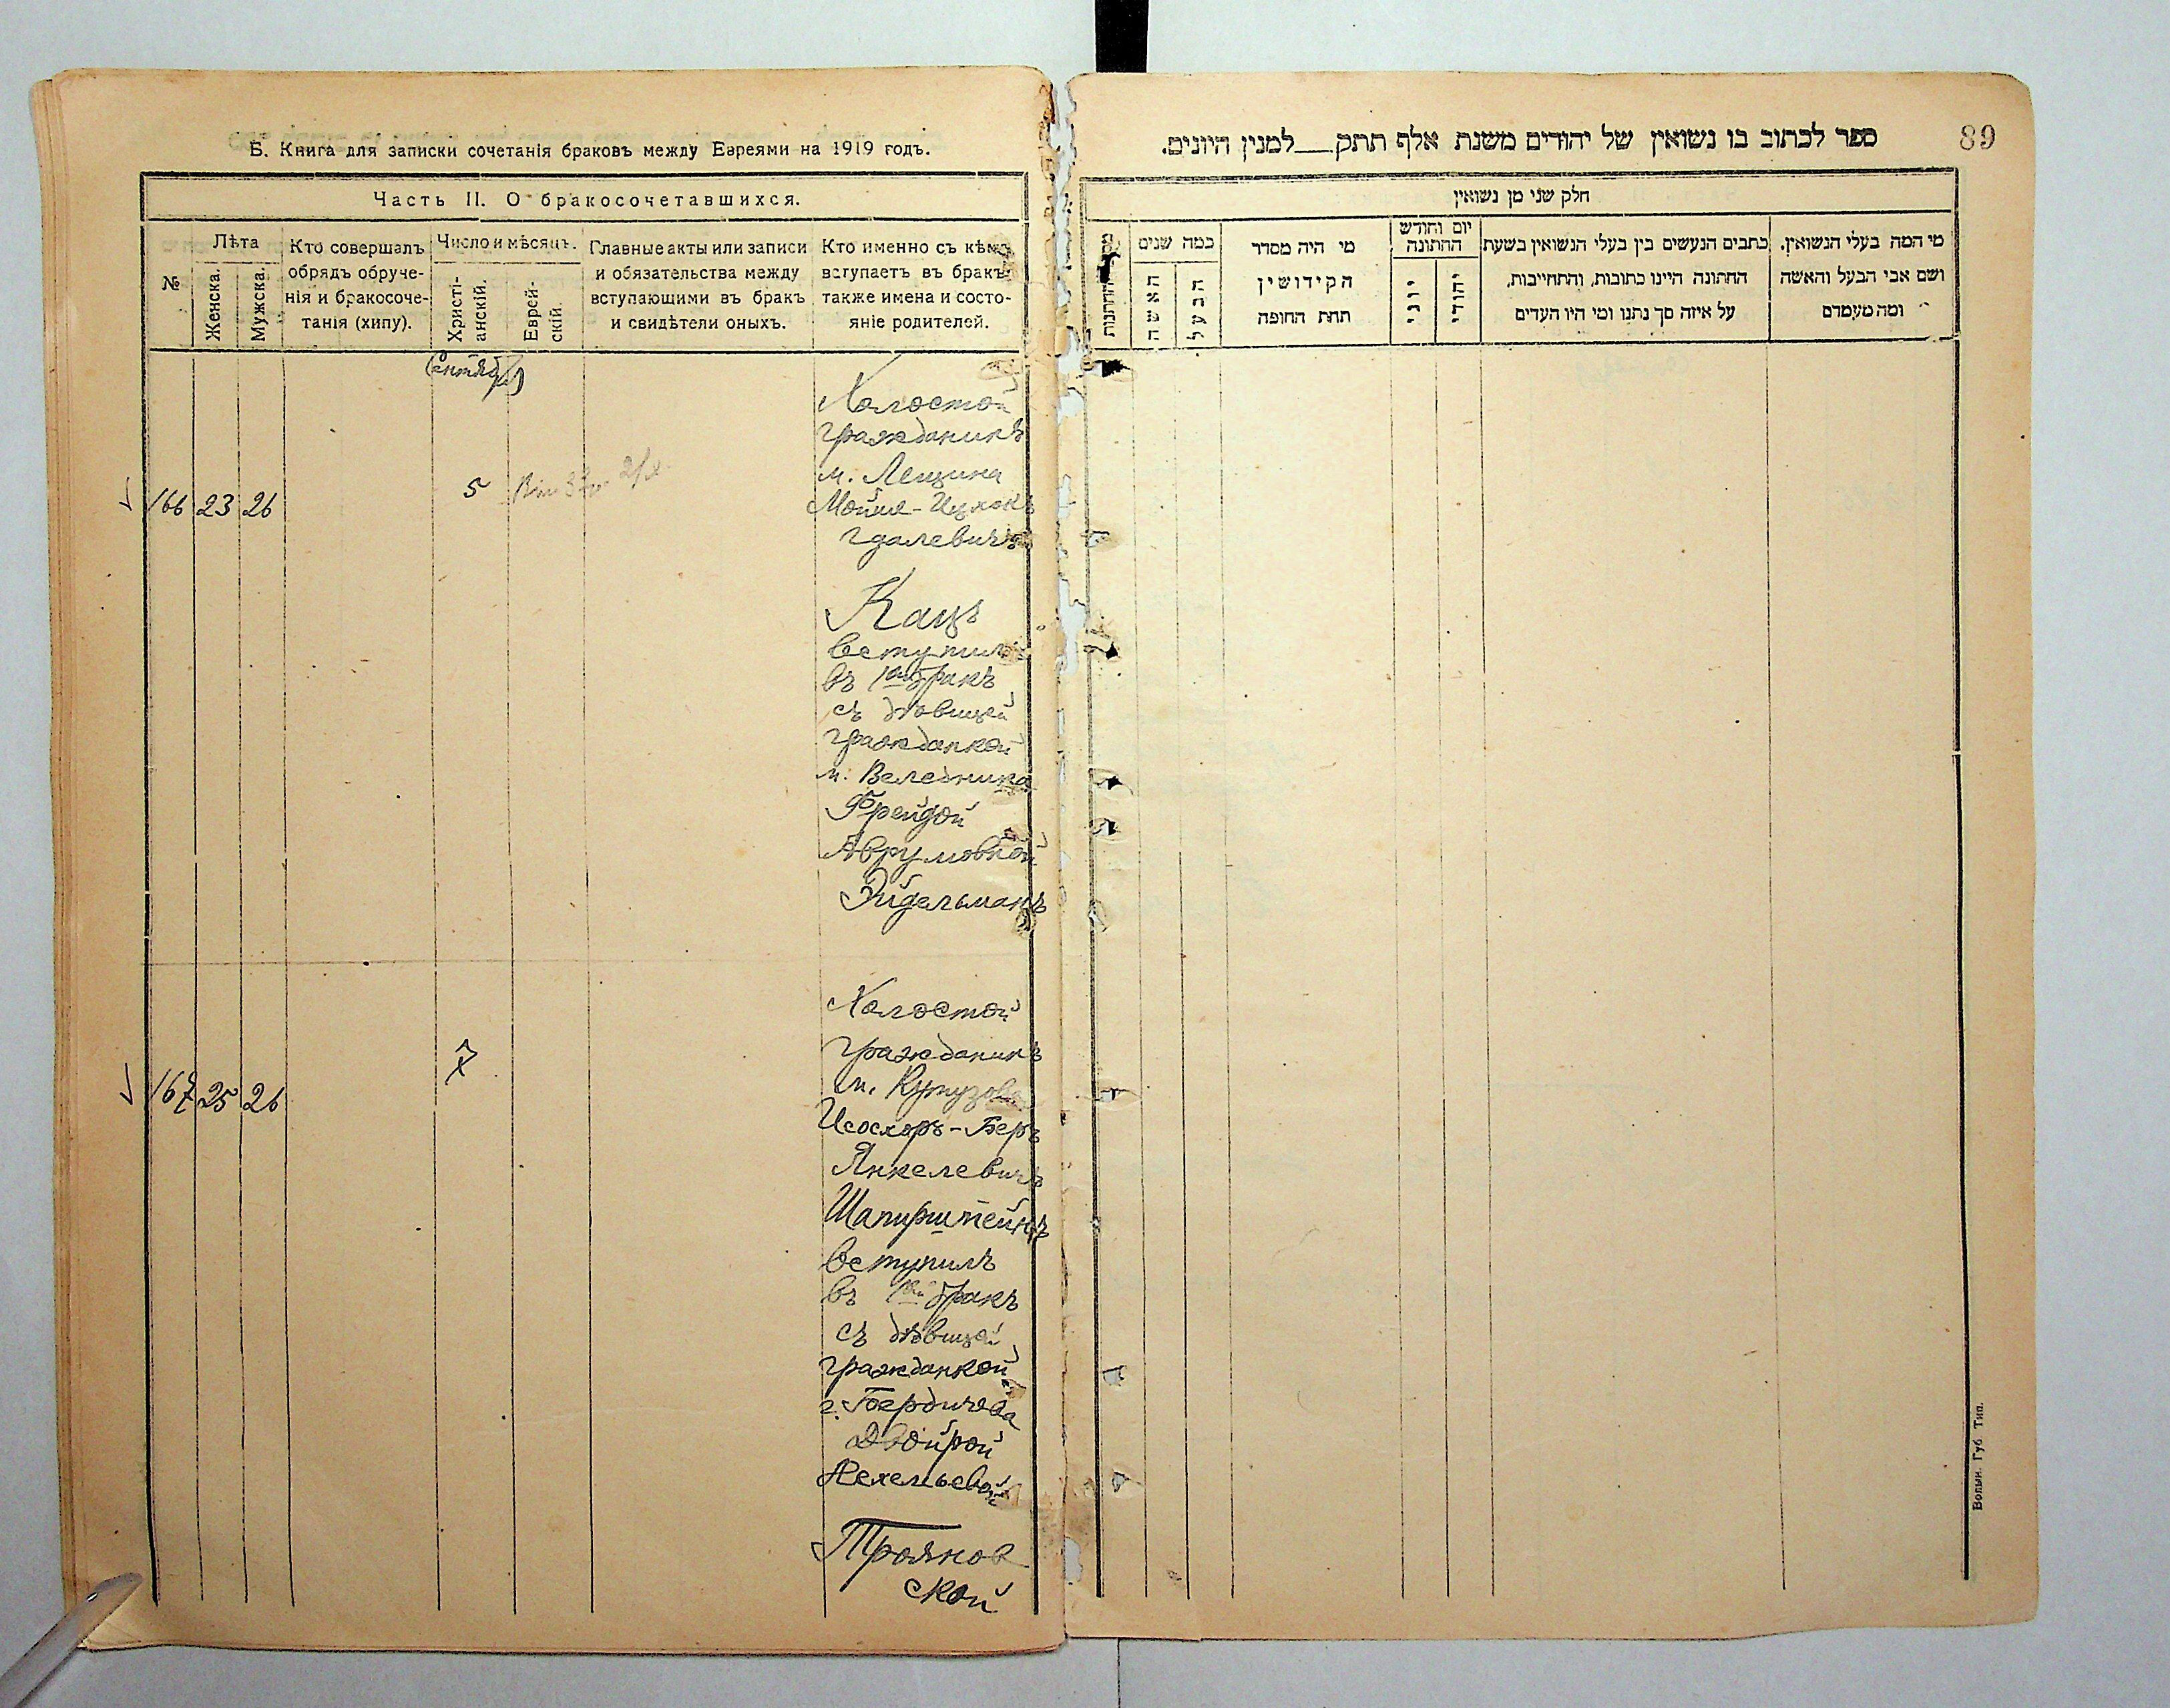 Б. Книга для записки сочетанія браковъ между Евреями на 1919 годъ.
Часть II. О бракосочетавшихся.
№
Лѣта
Женска.
Мужска.
Кто совершалъ
обрядъ обруче-
нія и бракосоче-
танія (хипу).
Число и мѣсяцъ.
Христі-
анскій.
Еврей-
скій.
Главные акты или записи
и обязательства между
вступающими въ бракъ
и свидѣтели оныхъ.
Кто именно съ кѣмъ
вступаетъ въ бракъ
также имена и состо-
яніе родителей.
Сентябрь
166 23 26
5
Холостой
гражданинъ
м. Лещина
Мойше-Ицхокъ
Гдалевичъ
Кацъ
вступилъ
въ 1ый бракъ
съ дѣвицей
гражданкой
м. Веледника
Фрейдой
Аврумовной
Эйдельманъ
167 25 26
7
Холостой
гражданинъ
м. Кутузова
Исосхоръ-Беръ
Янкелевичъ
Шапирштейнъ
вступилъ
въ 1ый бракъ
съ дѣвицей
гражданкой
г. Бердичева
Двойрой
Хехельевой
Трояновской
89
ספר לכתוב בו נשואין של יהודים משנת אלף תתק___למנין היונים.
חלק שני מן נשואין
מי המה בעלי הנשואין,
ושם אבי הבעל והאשה
ומה מעמדם
כתבים הנעשים בין בעלי הנשואין בשעת
החתונה היינו כתובות, והתחייבות,
על איזה סך נתנו ומי היו העדים
יום וחודש
החתונה
יהודי
יוני
מי היה מסדר
הקידושין
תחת החופה
כמה שנים
הבעל
האשה
Волын. Губ Тип.